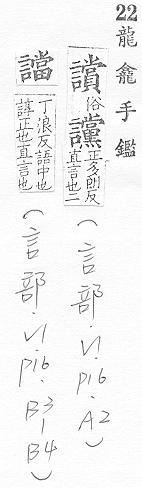 22 龍龕手鑑
讃 俗 讜 正多朗反
直言也二
(言部.VI.p16.A2)
譡 丁浪反語中也
諄正也直言也
(言部.VI.p16.B3-B4)